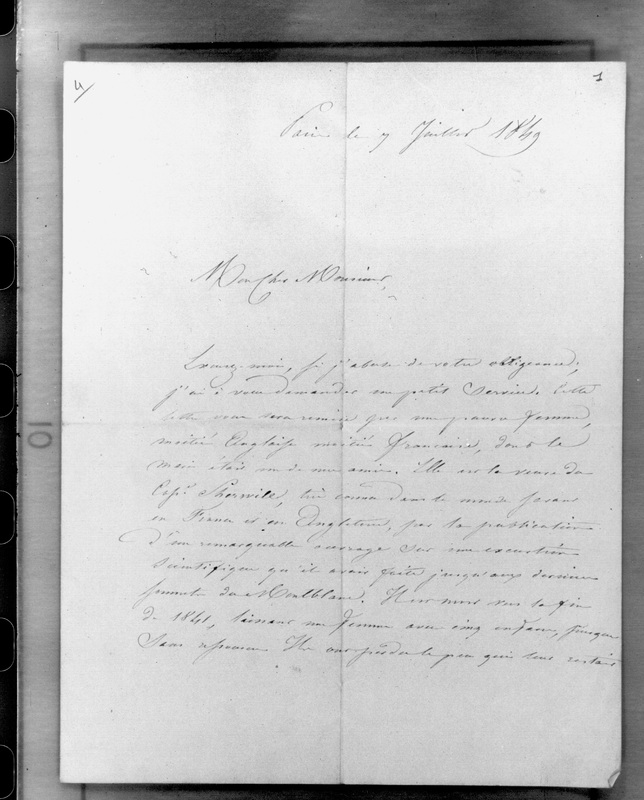 4/
1
Paris le 7 Juillet 1849
Mon Cher Monsieur,
Excusez-moi, si j'abuse de votre obligeance;
j'ai à vous demander un petit service. Cette
lettre vous sera remise par une pauvre femme,
moitié Anglaise moitié française, dont le
mari était un de mes amis. Elle est la veuve du
Capt. Sherwill, très connu dans le monde savant
en France et en Angleterre, par la publication
d'un remarquable ouvrage sur une excursion
scientifique qu'il avait faite jusqu'aux derniers
sommets du Montblanc. Il est mort vers la fin
de 1841, laissant une femme avec cinq enfans, presque
sans ressources. Ils ont perdu le peu qui leur restait
10